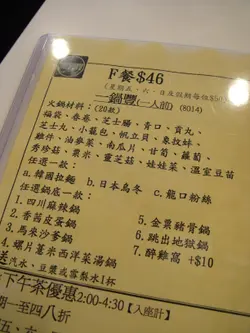 F餐$46
(星期五、六、日及假期每位$50)
一鍋豐(一人前) (8014)
火鍋材料：(20款)
福袋、春卷、芝士腸、青口、貢丸、
芝士丸、小籠包、帆立貝、象拔蚌、
雞件、油麥菜、南瓜片、甘筍、蘿蔔、
秀珍菇、粟米、靈芝菇、娃娃菜、溫室豆苗
任選一款：
a.韓國拉麵 b.日本烏冬 c.龍口粉絲
任選鍋底一款：
1.四川麻辣鍋
2.香茜皮蛋鍋
3.馬來沙爹鍋
4.螺片薏米西洋菜湯鍋
5.金粟豬骨鍋
6.跳出地獄鍋
7.醉雞窩 +$10
送汽水、豆漿或雪糕水1杯
下午茶優惠2:00-4:30【入座計】
期一至四八折